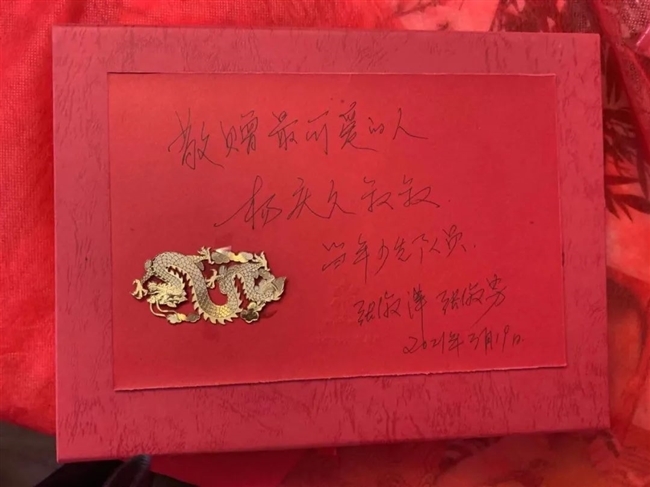 敬赠最可爱的人
杨庆久叔叔.
当年少先队员.
张淑萍 张淑
2021年3月19日